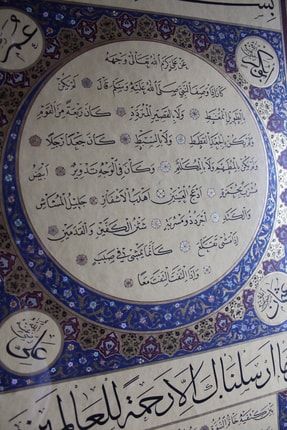 بسم
ابو بكر
عمر
عن علي كرم الله تعالى وجهه
كان اذا وصف النبي صلى الله عليه وسلم قال لم يكن
بالطويل الممغط ولا بالقصير المتردد كان ربعة من القوم
ولم يكن بالجعد القطط ولا بالسبط كان جعدا رجلا
ولم يكن بالمطهم ولا بالمكلثم وكان في الوجه تدوير ابيض
مشرب بحمرة ادعج العينين اهدب الاشفار جليل المشاش
والكتد اجرد ذو مسربة شثن الكفين والقدمين
اذا مشى تقلع كانما يمشي في صبب
واذا التفت التفت معا
علي
وما ارسلناك الا رحمة للعالمين
بين كتفيه خاتم النبوة